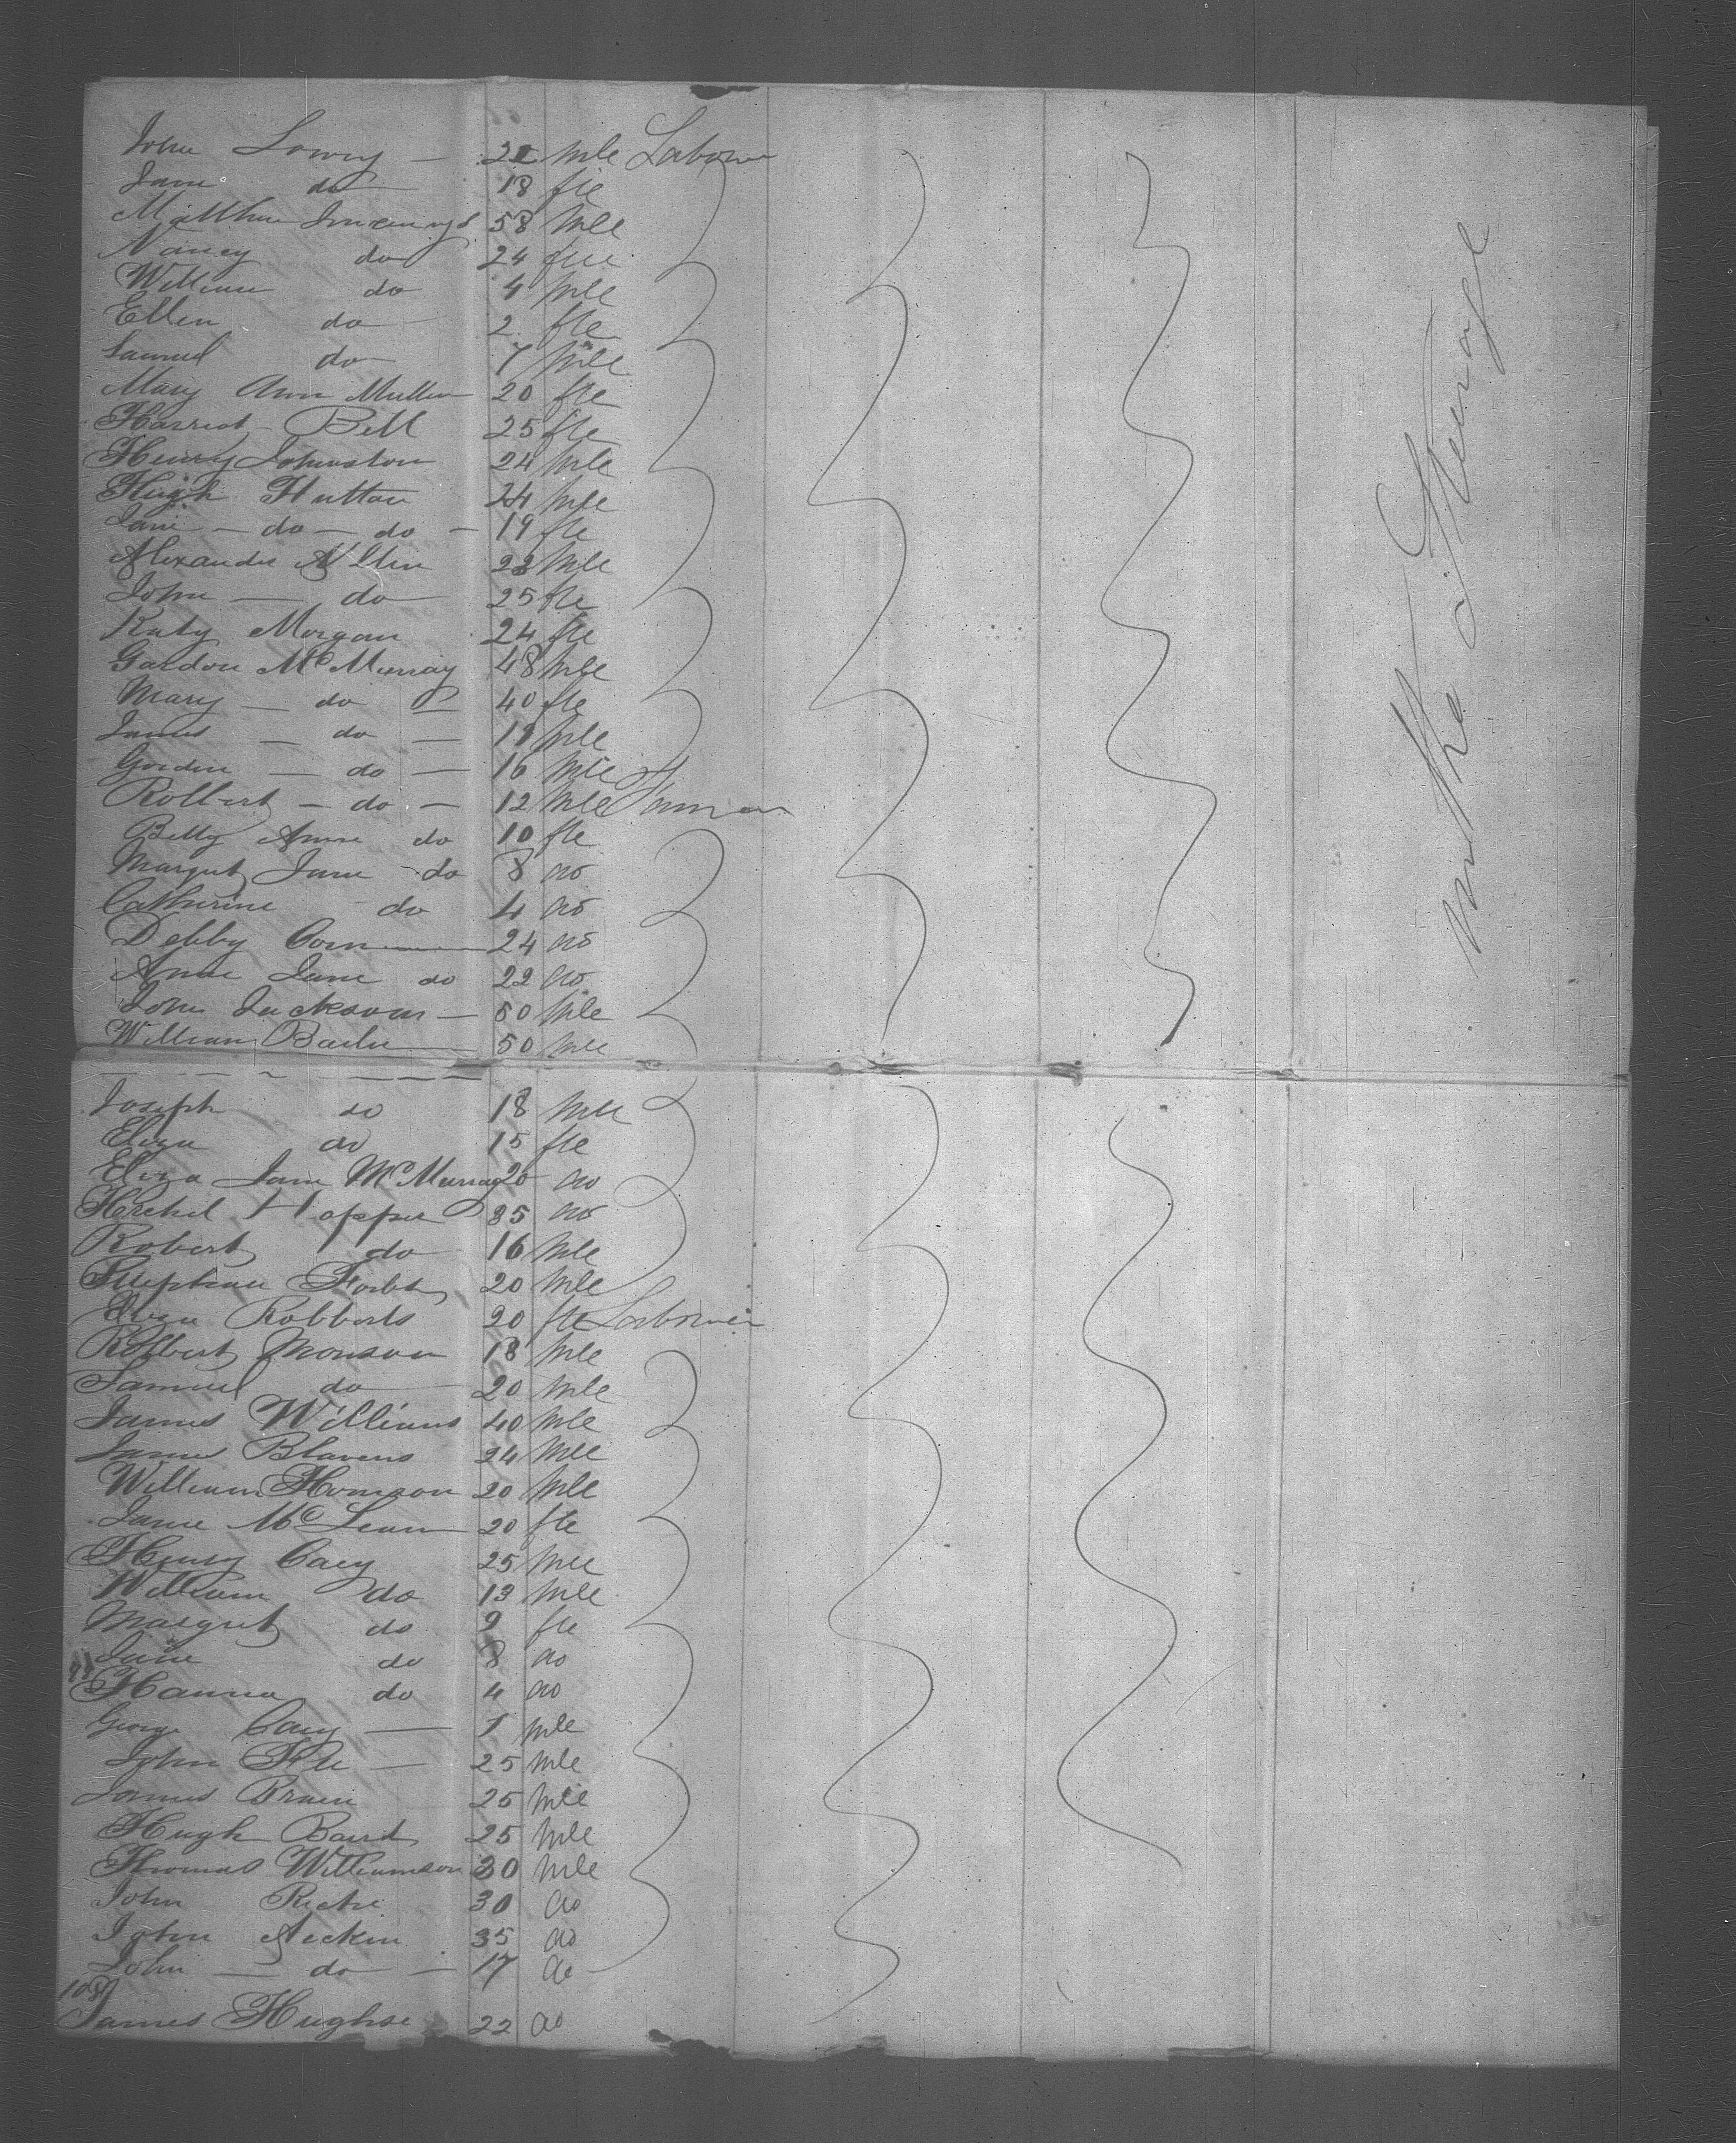 John Lowry — 21 mle Labourer
Jane do 18 fle
Matthew 58 mle
Nancy do 24 fle
William do 4 mle
Ellen do 2 fle
Samuel do 7 mle
Mary Ann Mullen 20 fle
Harriot Bell 25 fle
Henry Johnston 24 mle
Hugh Hutton 24 mle
Jane — do — do — 19 fle
Alexander Allin 22 mle
John — do 25 fle
Katy Morgan 24 fle
Gordon McMurray 48 mle
Mary — do — 40 fle
James — do — 18 mle
Gordon — do — 16 mle
Robbert — do — 12 mle Farmer
Betty Anne do 10 fle
Margret Jane do 8 do
Catherine do 4 do
Debby 24 do
Anne Jane do 22 do
John Jackson — 50 mle
William Bailie 50 mle
Joseph do 18 mle
Eliza do 15 fle
Eliza Jane McMurray 20 do
Hopper 35 do
Robert do 16 mle
20 mle
Eliza Robberts 20 fle Labourer
Robbert Monson 18 mle
Samuel do 20 mle
James Williams 40 mle
James Blavens 24 mle
William Thomson 20 mle
Jane McLean 20 fle
Henry Cary 25 mle
William do 13 mle
Margret do 9 fle
Jane do 8 do
Hanna do 4 do
George Cary — 1 mle
John — 25 mle
James 25 mle
Hugh Baird 25 mle
Thomas Williamson 30 mle
John 30 do
John 35 do
John — do — 17 do
108
James Hughse 22 do
in the Steerage